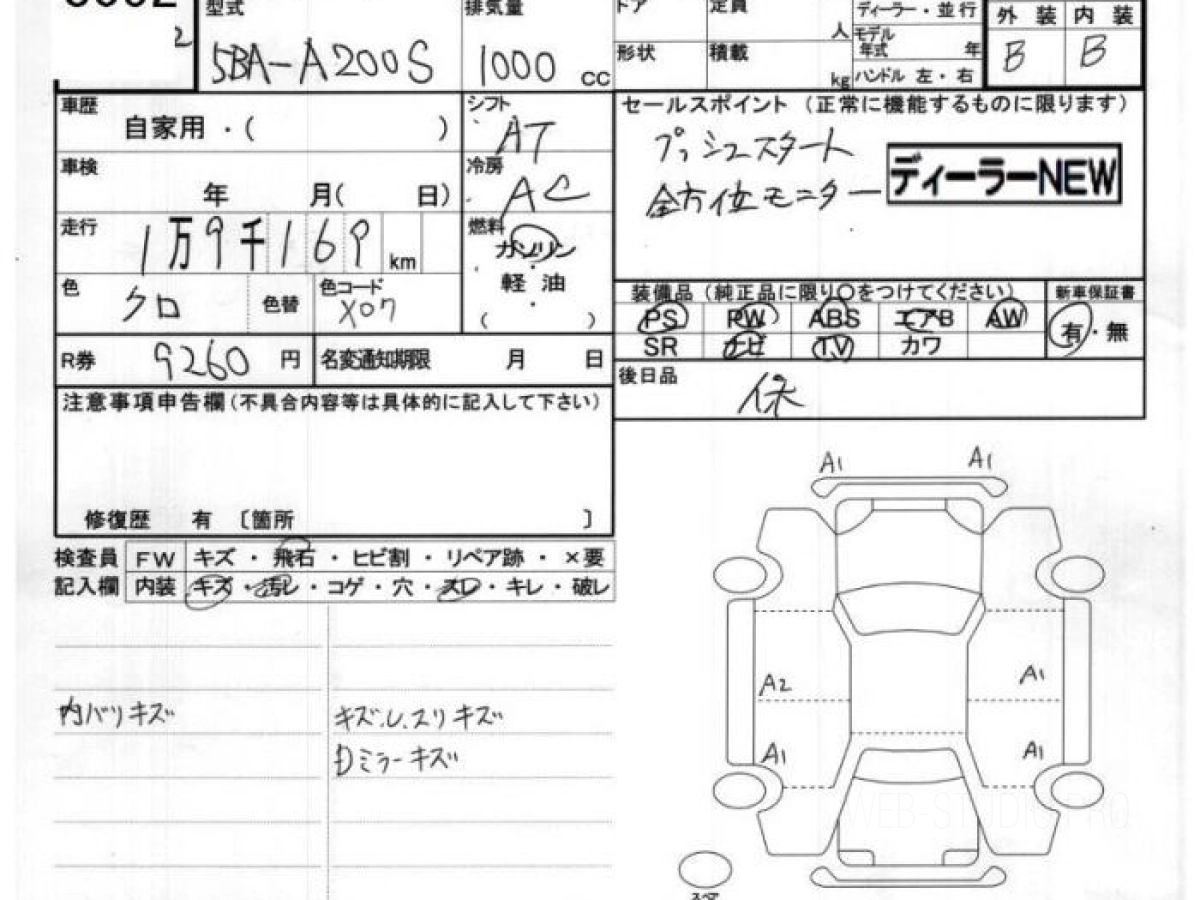 2
型式
5BA-A200S
排気量
1000 cc
ドア
定員
人
形状
積載
kg
ディーラー・並行
モデル年式 年
ハンドル 左・右
外装 内装
B B
車歴
自家用・( )
シフト
AT
車検
年 月( 日)
冷房
AC
走行
1万9千169 km
燃料
ガソリン
軽油
・
( )
色
クロ
色替
色コード
X07
R券 9260 円
名変通知期限 月 日
セールスポイント (正常に機能するものに限ります)
プッシュスタート
全方位モニター
ディーラーNEW
装備品(純正品に限り○をつけてください)
新車保証書
PS PW ABS エアB AW
有・無
SR ナビ TV カワ
後日品
保
注意事項申告欄(不具合内容等は具体的に記入して下さい)
修復歴 有 〔箇所 〕
検査員 FW キズ・飛石・ヒビ割・リペア跡・×要
記入欄 内装 キズ・汚レ・コゲ・穴・スレ・キレ・破レ
内バリキズ
キズ.
キズ
Dミラーキズ
A1 A1
A2 A1
A1 A1
WEB-STUDIO.PRO